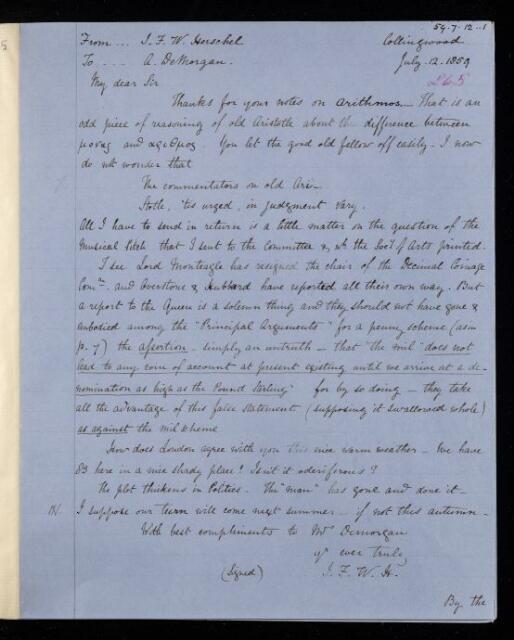 59.7.12..1
From... J. F. W. Herschel Collingwood
To .... A. DeMorgan. July 12. 1859
265
My dear Sir
Thanks for your notes on Arithmos. That is an
odd piece of reasoning of old Aristotle about the difference between
μονας and αριθμος. You let the good old fellow off easily. I now
do not wonder that
The commentators on old Aris-
totle, 'tis urged, in judgment vary.
All I have to send in return is a little matter on the question of the
Musical Pitch that I sent to the Committee & wh the Soc.y of Arts printed.
I see Lord Monteagle has resigned the chair of the Decimal Coinage
Comn. and Overstone & Hubbard have reported all their own way. But
a report to the Queen is a solemn thing and they should not have gone &
embodied among the "Principal Arguments" for a penny scheme (as in
p. 7) the assertion - simply an untruth - that "the mil "does not
lead to any coin of account at present existing until we arrive at a de-
nomination as high as the Pound Sterling" for by so doing - they take
all the advantage of this false statement (supposing it swallowed whole)
as against the mil scheme
How does London agree with you this nice warm weather - We have
83 here in a nice shady place! Isn't it oderiferous?
The plot thickens in Politics. The "man" has gone and done it -
I suppose our turn will come next summer - if not this autumn -
With best compliments to Mrs Demorgan
yrs ever truly
(Signed) J. F. W. H.
By the